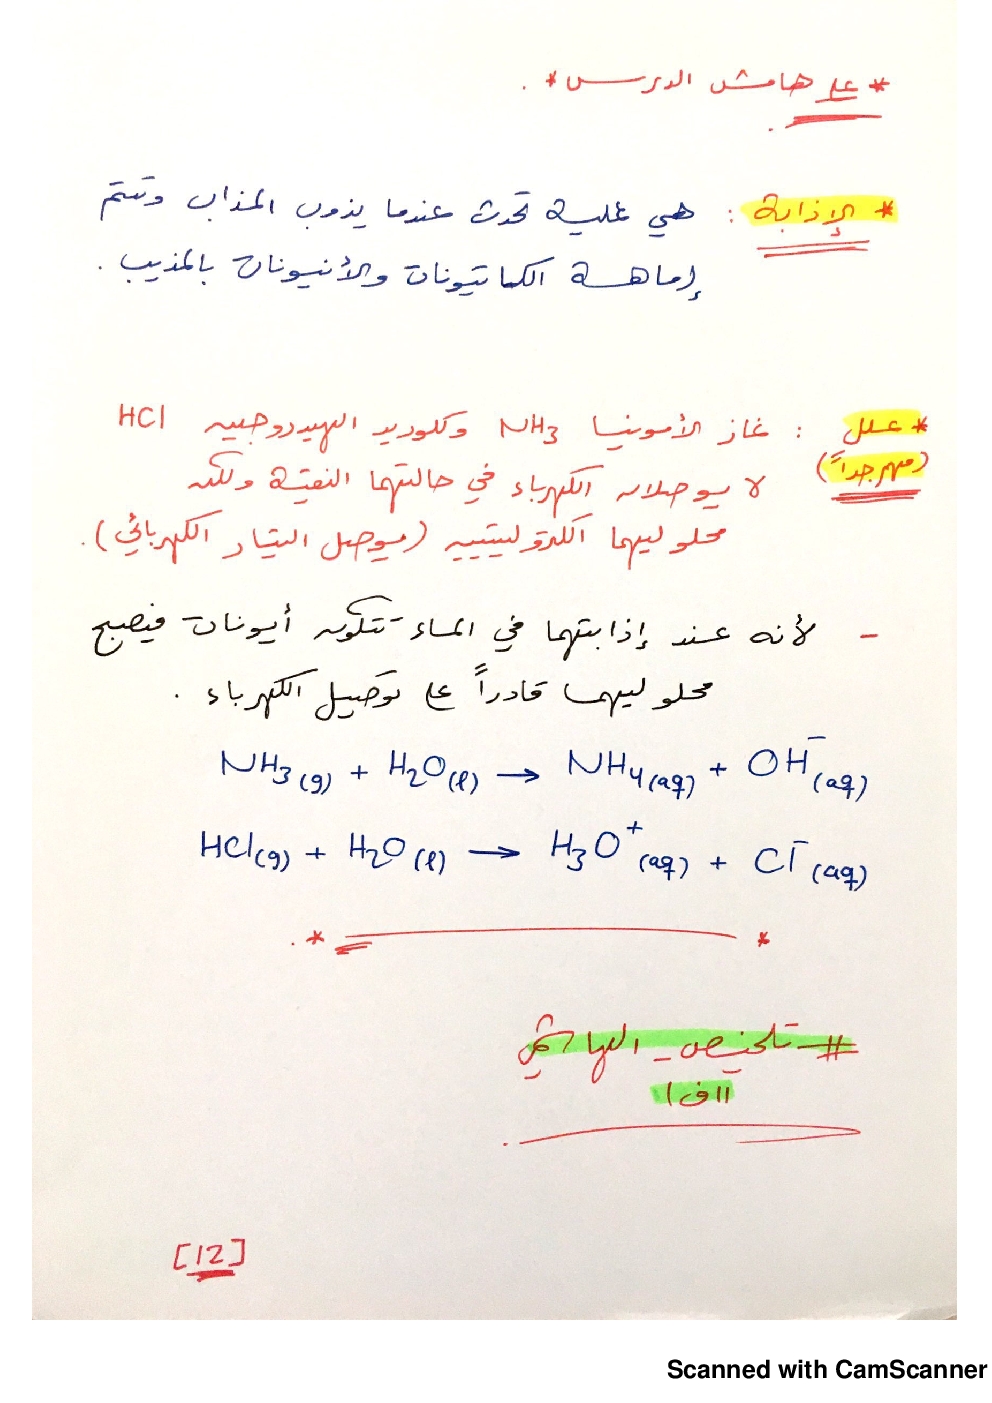 * على هامش الدرس * .
* الإذابة : هي عملية تحدث عندما يذوب المذاب وتتم
إماهة الكاتيونات والأنيونات بالمذيب .
* علل : غاز الأمونيا NH3 وكلوريد الهيدروجين HCl
(مهم جداً) لا يوصلان الكهرباء في حالتهما النقية ولكن
محلوليهما الكتروليتيين (موصل التيار الكهربائي) .
- لأنه عند إذابتهما في الماء تتكون أيونات فيصبح
محلوليهما قادراً على توصيل الكهرباء .
NH₃(g) + H₂O(l) → NH₄(aq) + OH⁻(aq)
HCl(g) + H₂O(l) → H₃O⁺(aq) + Cl⁻(aq)
* *.
# تلخيص _ الهاشمي
١١ف١
[12]
Scanned with CamScanner